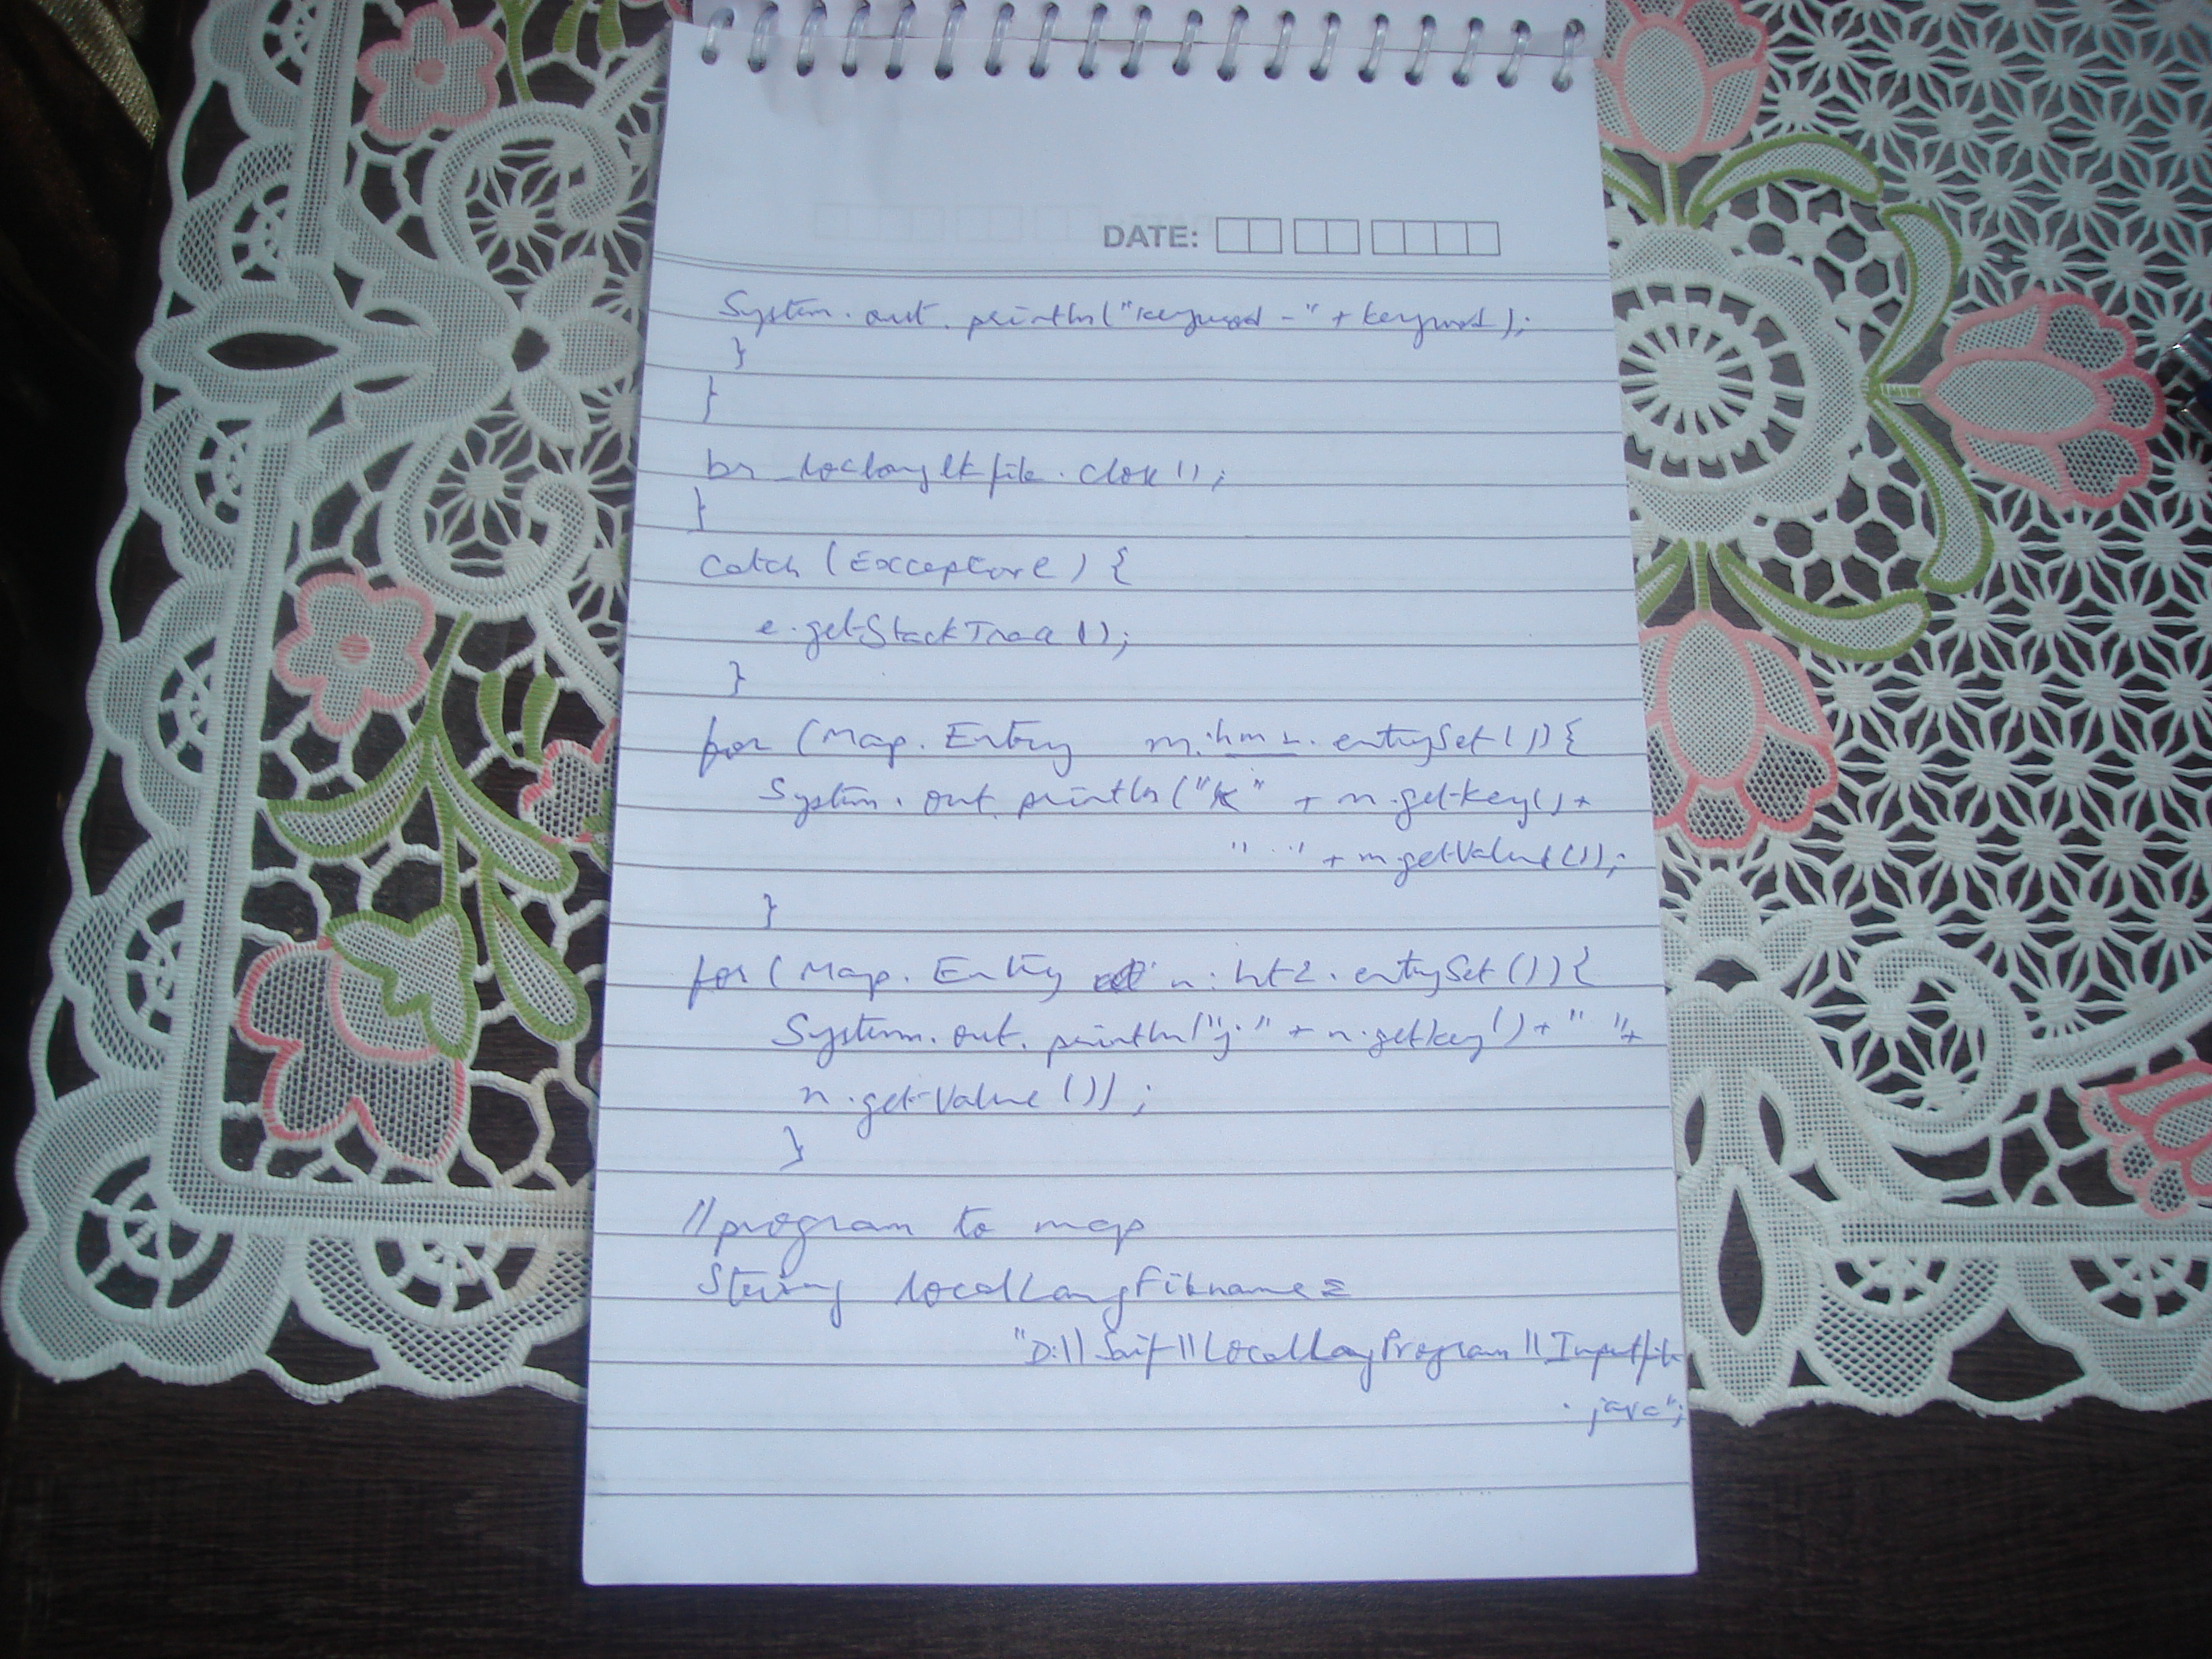 DATE:
System.out.println("keyword -" + keyword);
}
}
br_loclanglkfile.close();
}
catch (Exception e) {
e.getStackTrace();
}
for (Map.Entry m: hm2.entrySet()) {
System.out.println("K" + m.getKey() +
" " + m.getValue());
}
for (Map.Entry n: ht2.entrySet()) {
System.out.println("j" + n.getKey() + " " +
n.getValue());
}
//program to map
String localLangFilename =
"D:\\Saif\\LocalLangProgram\\Inputfile
.java";